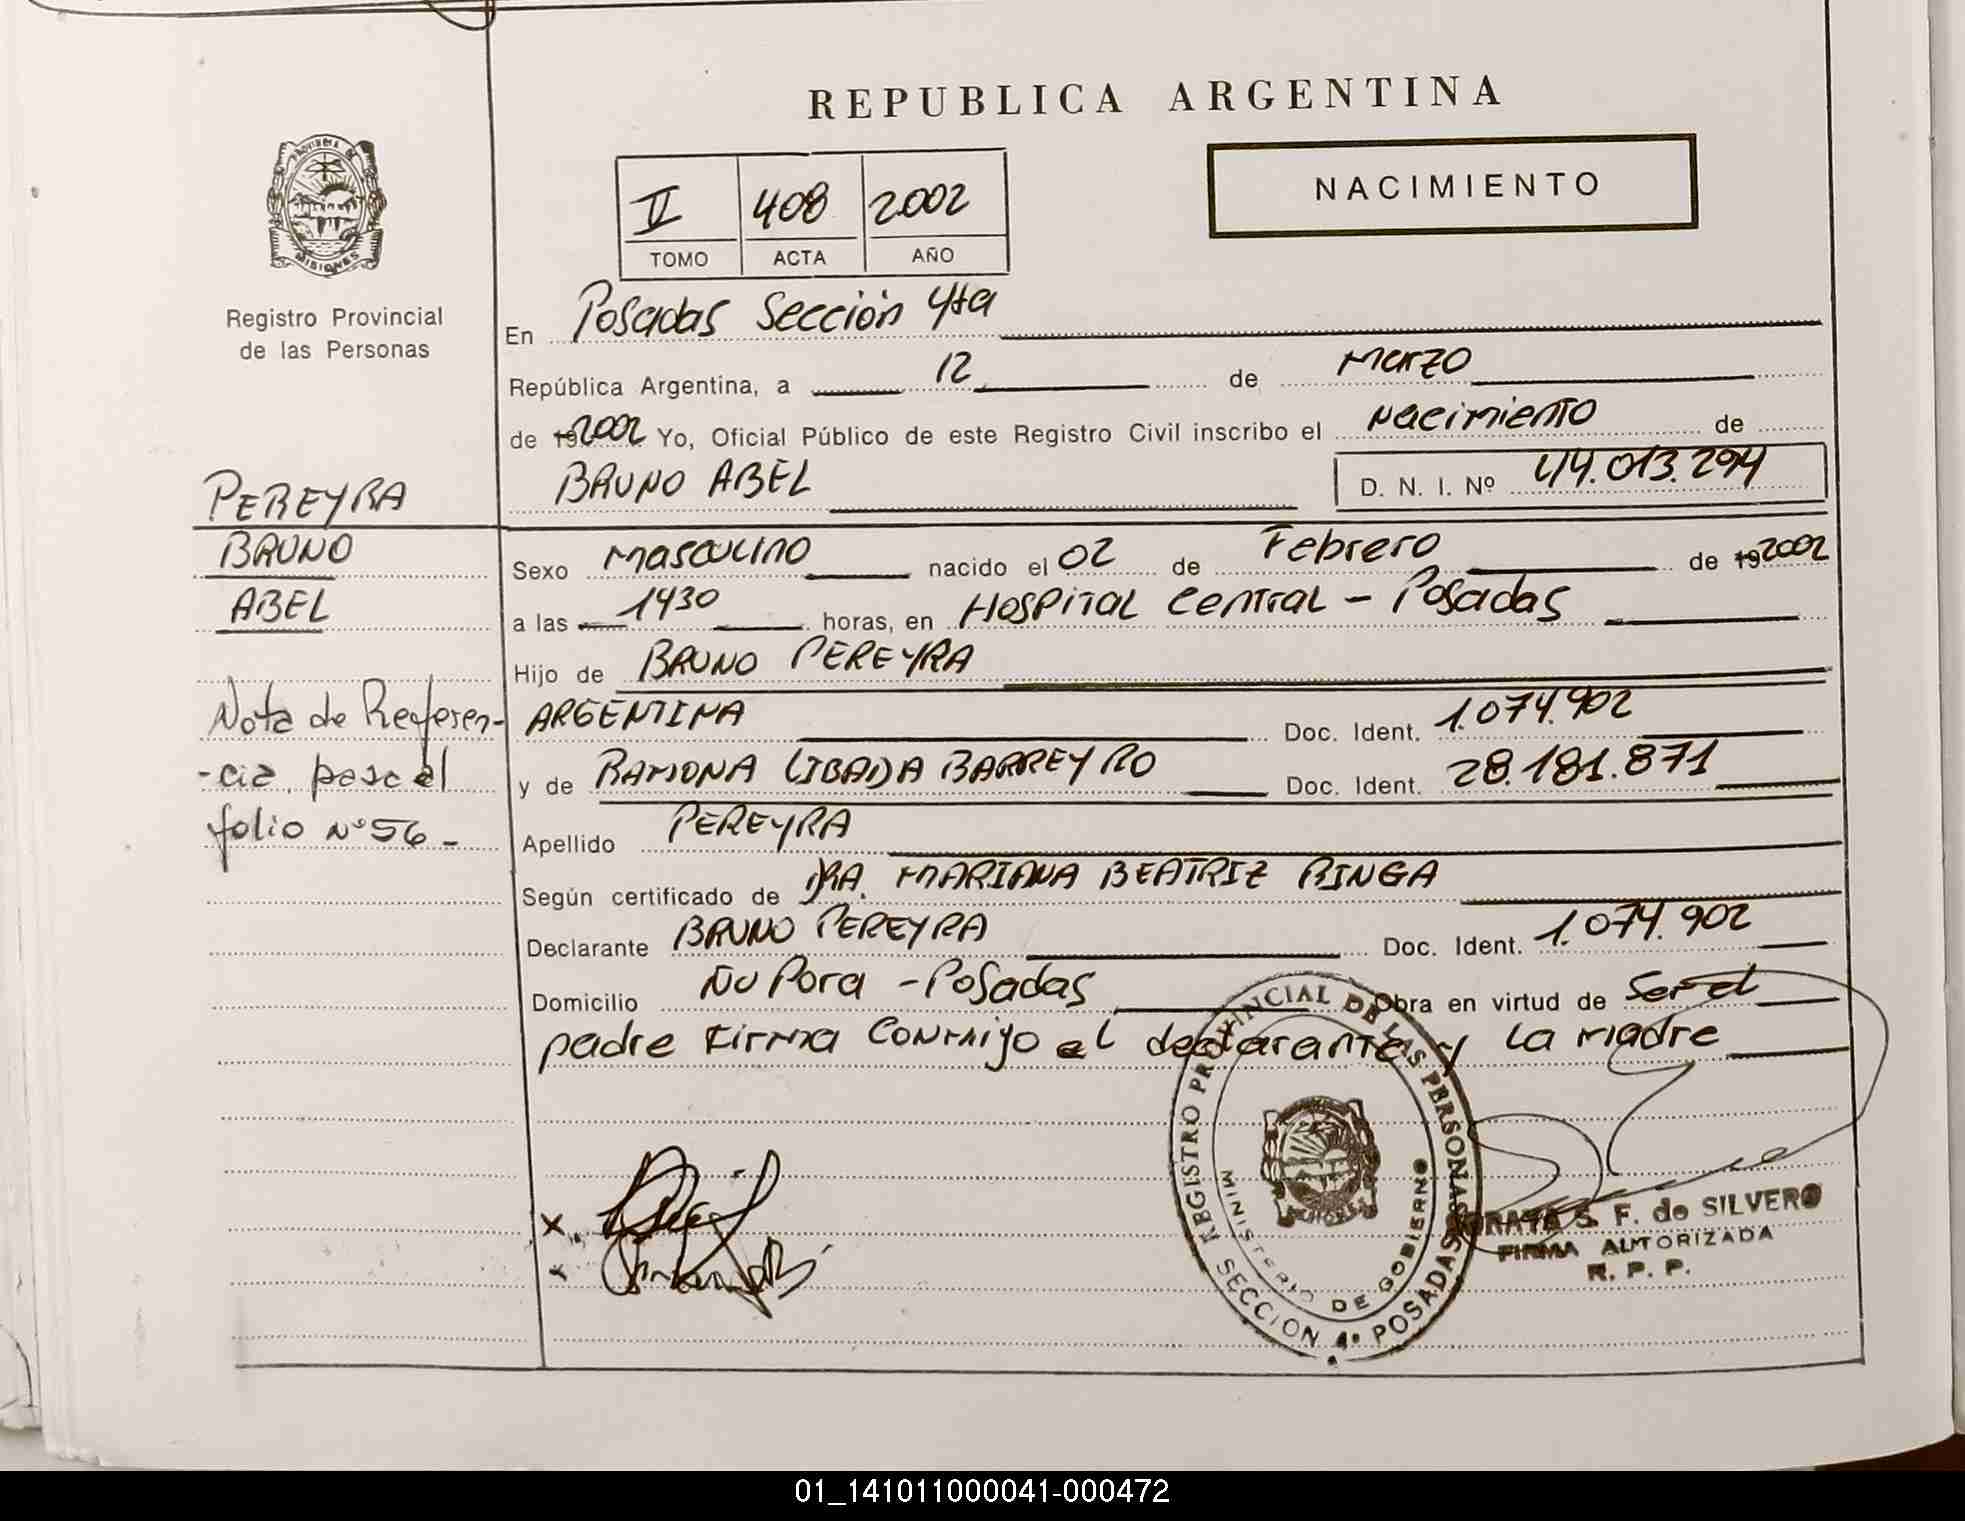 REPUBLICA ARGENTINA
PROVINCIA DE
MISIONES
Registro Provincial
de las Personas
II 408 2002
TOMO ACTA AÑO
NACIMIENTO
En Posadas Sección 4ta
República Argentina, a 12 de Marzo
de 192002 Yo, Oficial Público de este Registro Civil inscribo el Nacimiento de
BRUNO ABEL D. N. I. Nº 44.013.294
PEREYRA
BRUNO
ABEL
Sexo Masculino nacido el 02 de Febrero de 192002
a las 1430 horas, en Hospital Central - Posadas
Hijo de BRUNO PEREYRA
ARGENTINA Doc. Ident. 1.074.902
y de RAMONA LIBADA BARREYRO Doc. Ident. 28.181.871
Apellido PEREYRA
Nota de Referen-
-cia, pase al
folio Nº 56 -
Según certificado de DRA. MARIANA BEATRIZ RINGA
Declarante BRUNO PEREYRA Doc. Ident. 1.074.902
Domicilio Ñu Pora - Posadas Obra en virtud de Ser el
padre Firma Conmigo el declarante y La Madre
REGISTRO PROVINCIAL DE LAS PERSONAS
MINISTERIO DE GOBIERNO
SECCION 4º POSADAS
MISIONES
S. F. de SILVERO
FIRMA AUTORIZADA
R. P. P.
01_141011000041-000472